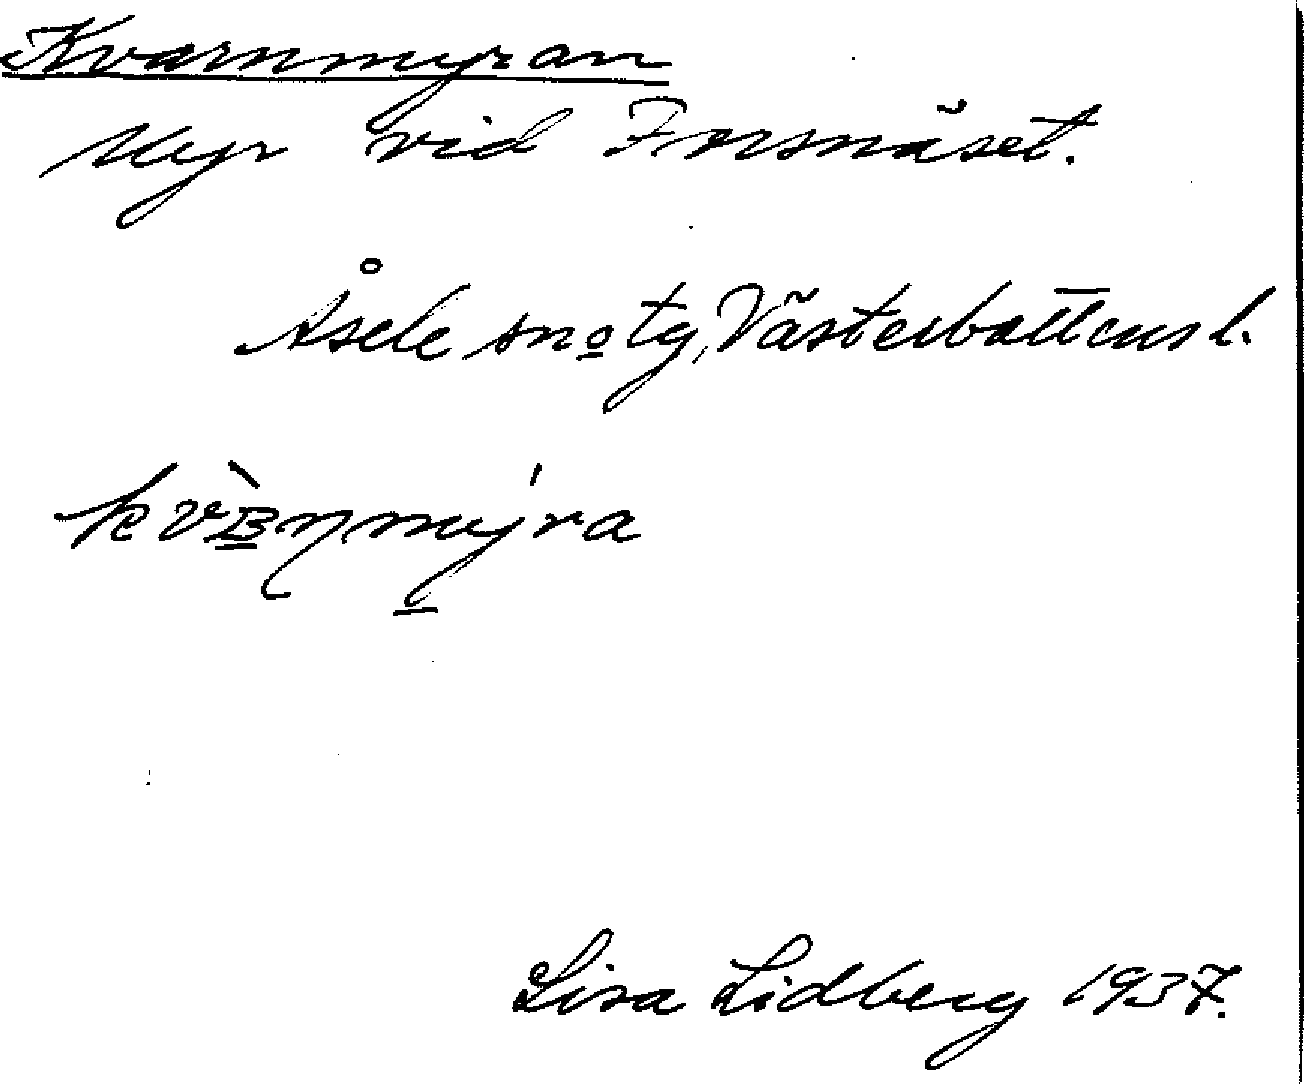 Kvarnmyran
Myr vid Forsnäset.
Åsele sno tg, Västerbottens l.
Lisa Lidberg 1937.